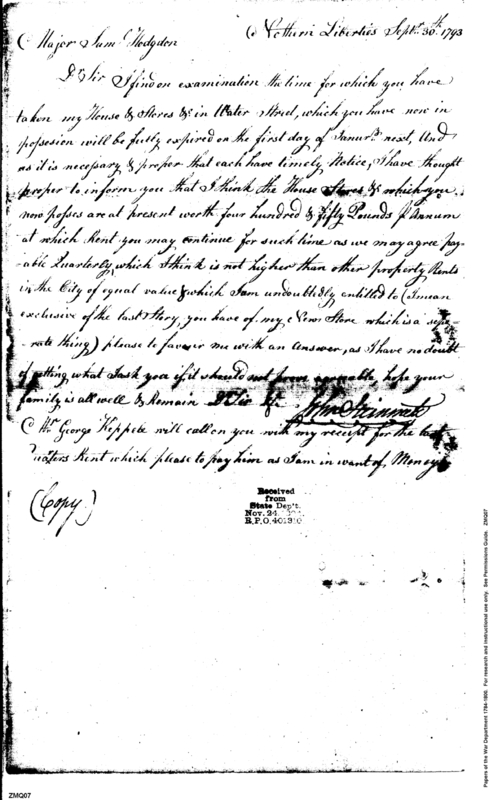 Nothern Liberties Sept.r 30.th 1793
Major Sam.l Hodgdon
D.r Sir I find on examination the time for which you have
taken my House & Stores &c in Water Street, which you have now in
possesion will be fully expired on the first day of Janur.y next, And
as it is necessary & proper that each have timely Notice, I have thought
proper to inform you that I think the House Stores &c which you
now posses are at present worth four hundred & fifty Pounds P Annum
at which Rent you may continue for such time as we may agree pay-
able Quarterly, which I think is not higher than other property Rents
in the City of equal value & which I am undoubtedly entitled to (I mean
exclusive of the last Story, you have of my New Store which is a sepe-
rate thing) please to favour me with an Answer, as I have no doubt
of getting what I ask you if it should not prove agreeable, hope your
family is all well & Remain D.r Sir &c
John Steinmetz
M.r George Keppele will call on you with my receipt for the last
quaters Rent which please to pay him as I am in want of Money
(Copy)
Received
from
State Dep't.
Nov. 24,
R.P.O. 401310
ZMQ07
Papers of the War Department 1784-1800. For research and instructional use only. See Permissions Guide. ZMQ07